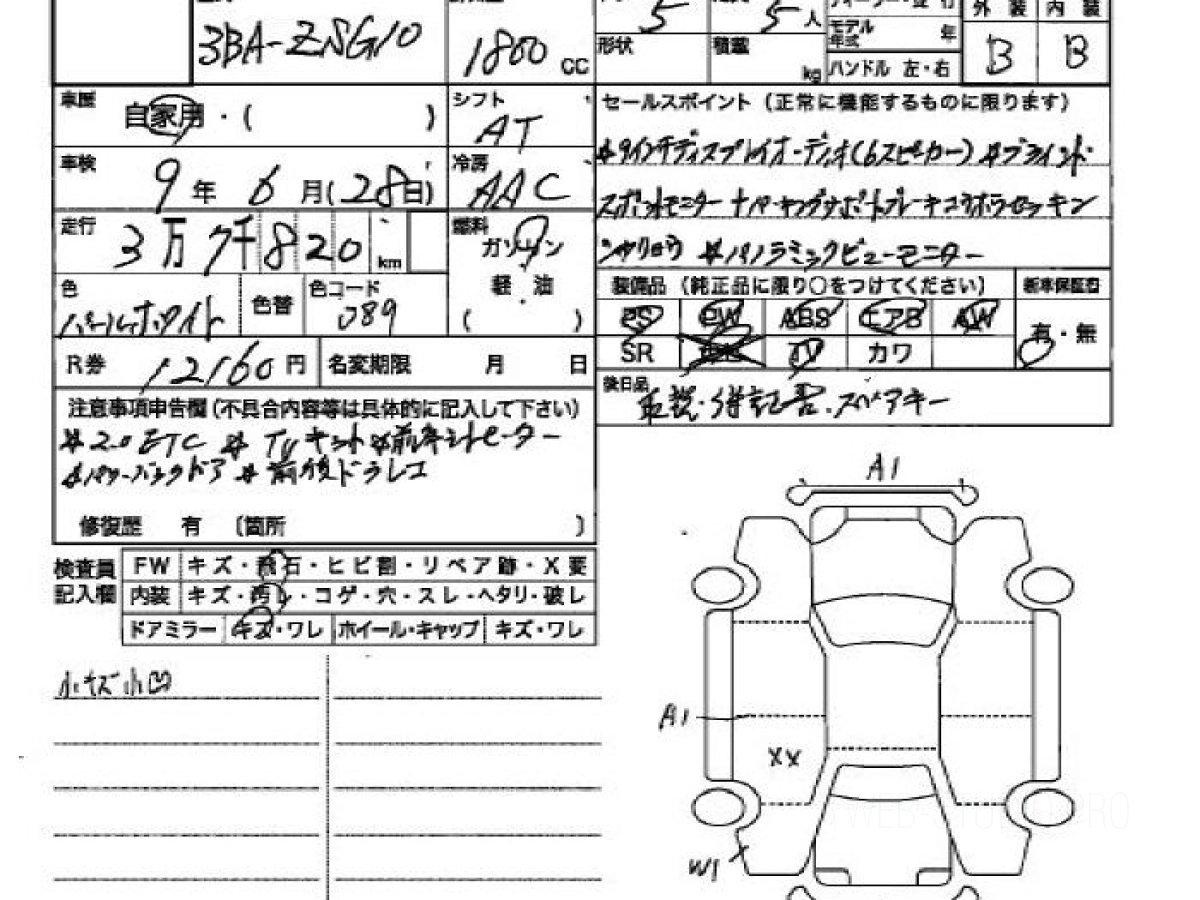 3BA-ZSG10
1800 cc
5
5人
モデル年式 年
外装 内装
形状
積載 kg
ハンドル 左・右
B B
車歴 自家用・( )
シフト AT
セールスポイント (正常に機能するものに限ります)
*9インチディスプレイオーディオ(6スピーカー) *ブラインド
スポットモニター
車検 9年6月(28日)
冷房 AAC
走行 3万7千820km
燃料 ガソリン
軽・油
( )
*パノラミックビューモニター
色 パールホワイト
色替
色コード 089
装備品 (純正品に限り○をつけてください)
新車保証書
PS PW ABS エアB AW
有・無
SR TV カワ
R券 12160円
名変期限 月 日
後日品 取説・保証書・スペアキー
注意事項申告欄(不具合内容等は具体的に記入して下さい)
*2.0 ETC *TVキット *前席シートヒーター
*パワーバックドア *前後ドラレコ
修復歴 有 〔箇所 〕
検査員記入欄
FW キズ・飛石・ヒビ割・リペア跡・X要
内装 キズ・汚レ・コゲ・穴・スレ・ヘタリ・破レ
ドアミラー キズ・ワレ ホイール・キャップ キズ・ワレ
小キズ小凹
A1
A1
XX
W1